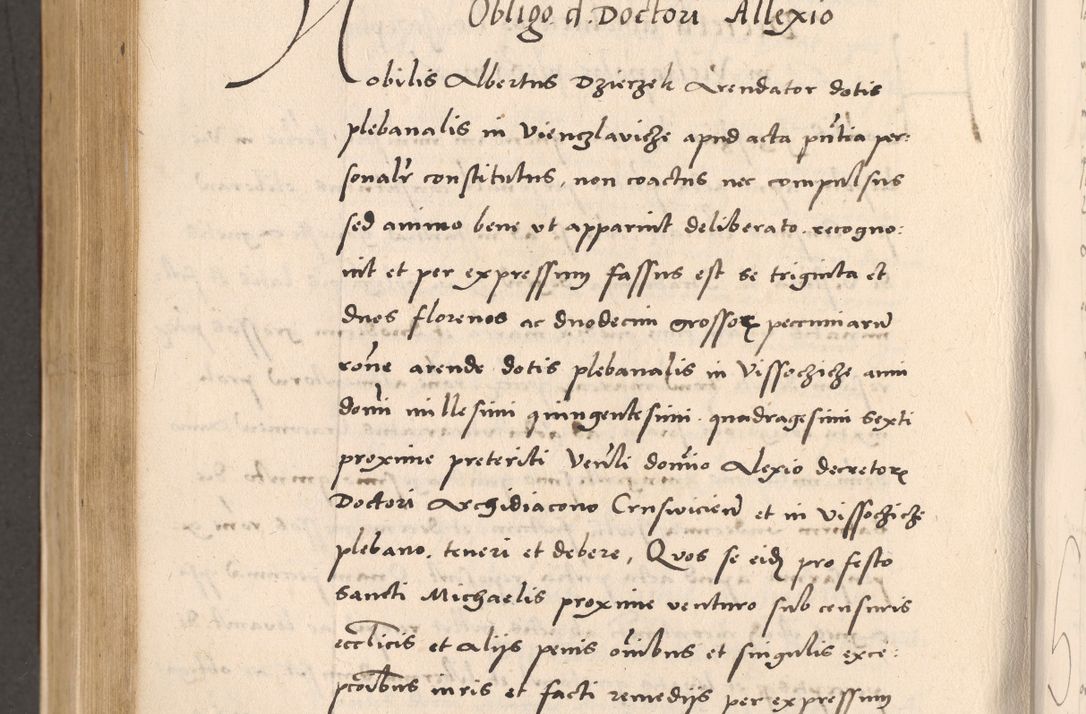 Obligo d. Doctori Allexio
Nobilis Albertus Dzierzek Arendator dotis
plebanalis in Vienczlaviche apud acta pn̄tia per:
sonalr̄ constitutus, non coactus nec compulsus
sed animo bene ut apparuit deliberato. recogno:
uit et per expressum fassus est se triginta et
duos florenos ac duodecim grossoꝝ pecuniarū
rōne arende dotis plebanalis in Vissochiche anni
domi millesimi quingentesimi quadragesimi sexti
proxime preteriti Venl̄i domīo Alexio decretoꝝ
Doctori Archidiacono Crusvicieñ et in Vissochiche
plebano, teneri et debere, Quos se eidꝫ pro festo
sancti Michaelis proxime venturo sub censuris
eccl̄icis et aliis penis ōnibus et singulis exce:
pcōibus iuris et facti remediis per expressum